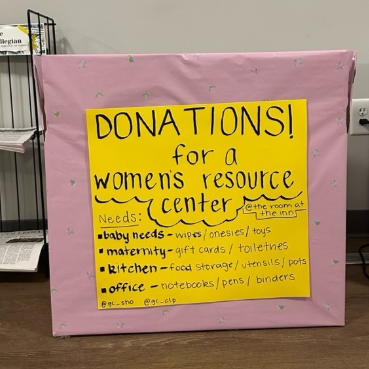 DONATIONS!
for a
women's resource
center
@the room at
the inn
Needs:
▪baby needs - wipes/onesies/toys
▪maternity - gift cards / toiletries
▪kitchen - food storage/utensils/pots
▪office - notebooks/pens/binders
@gc_sho @gc_clp